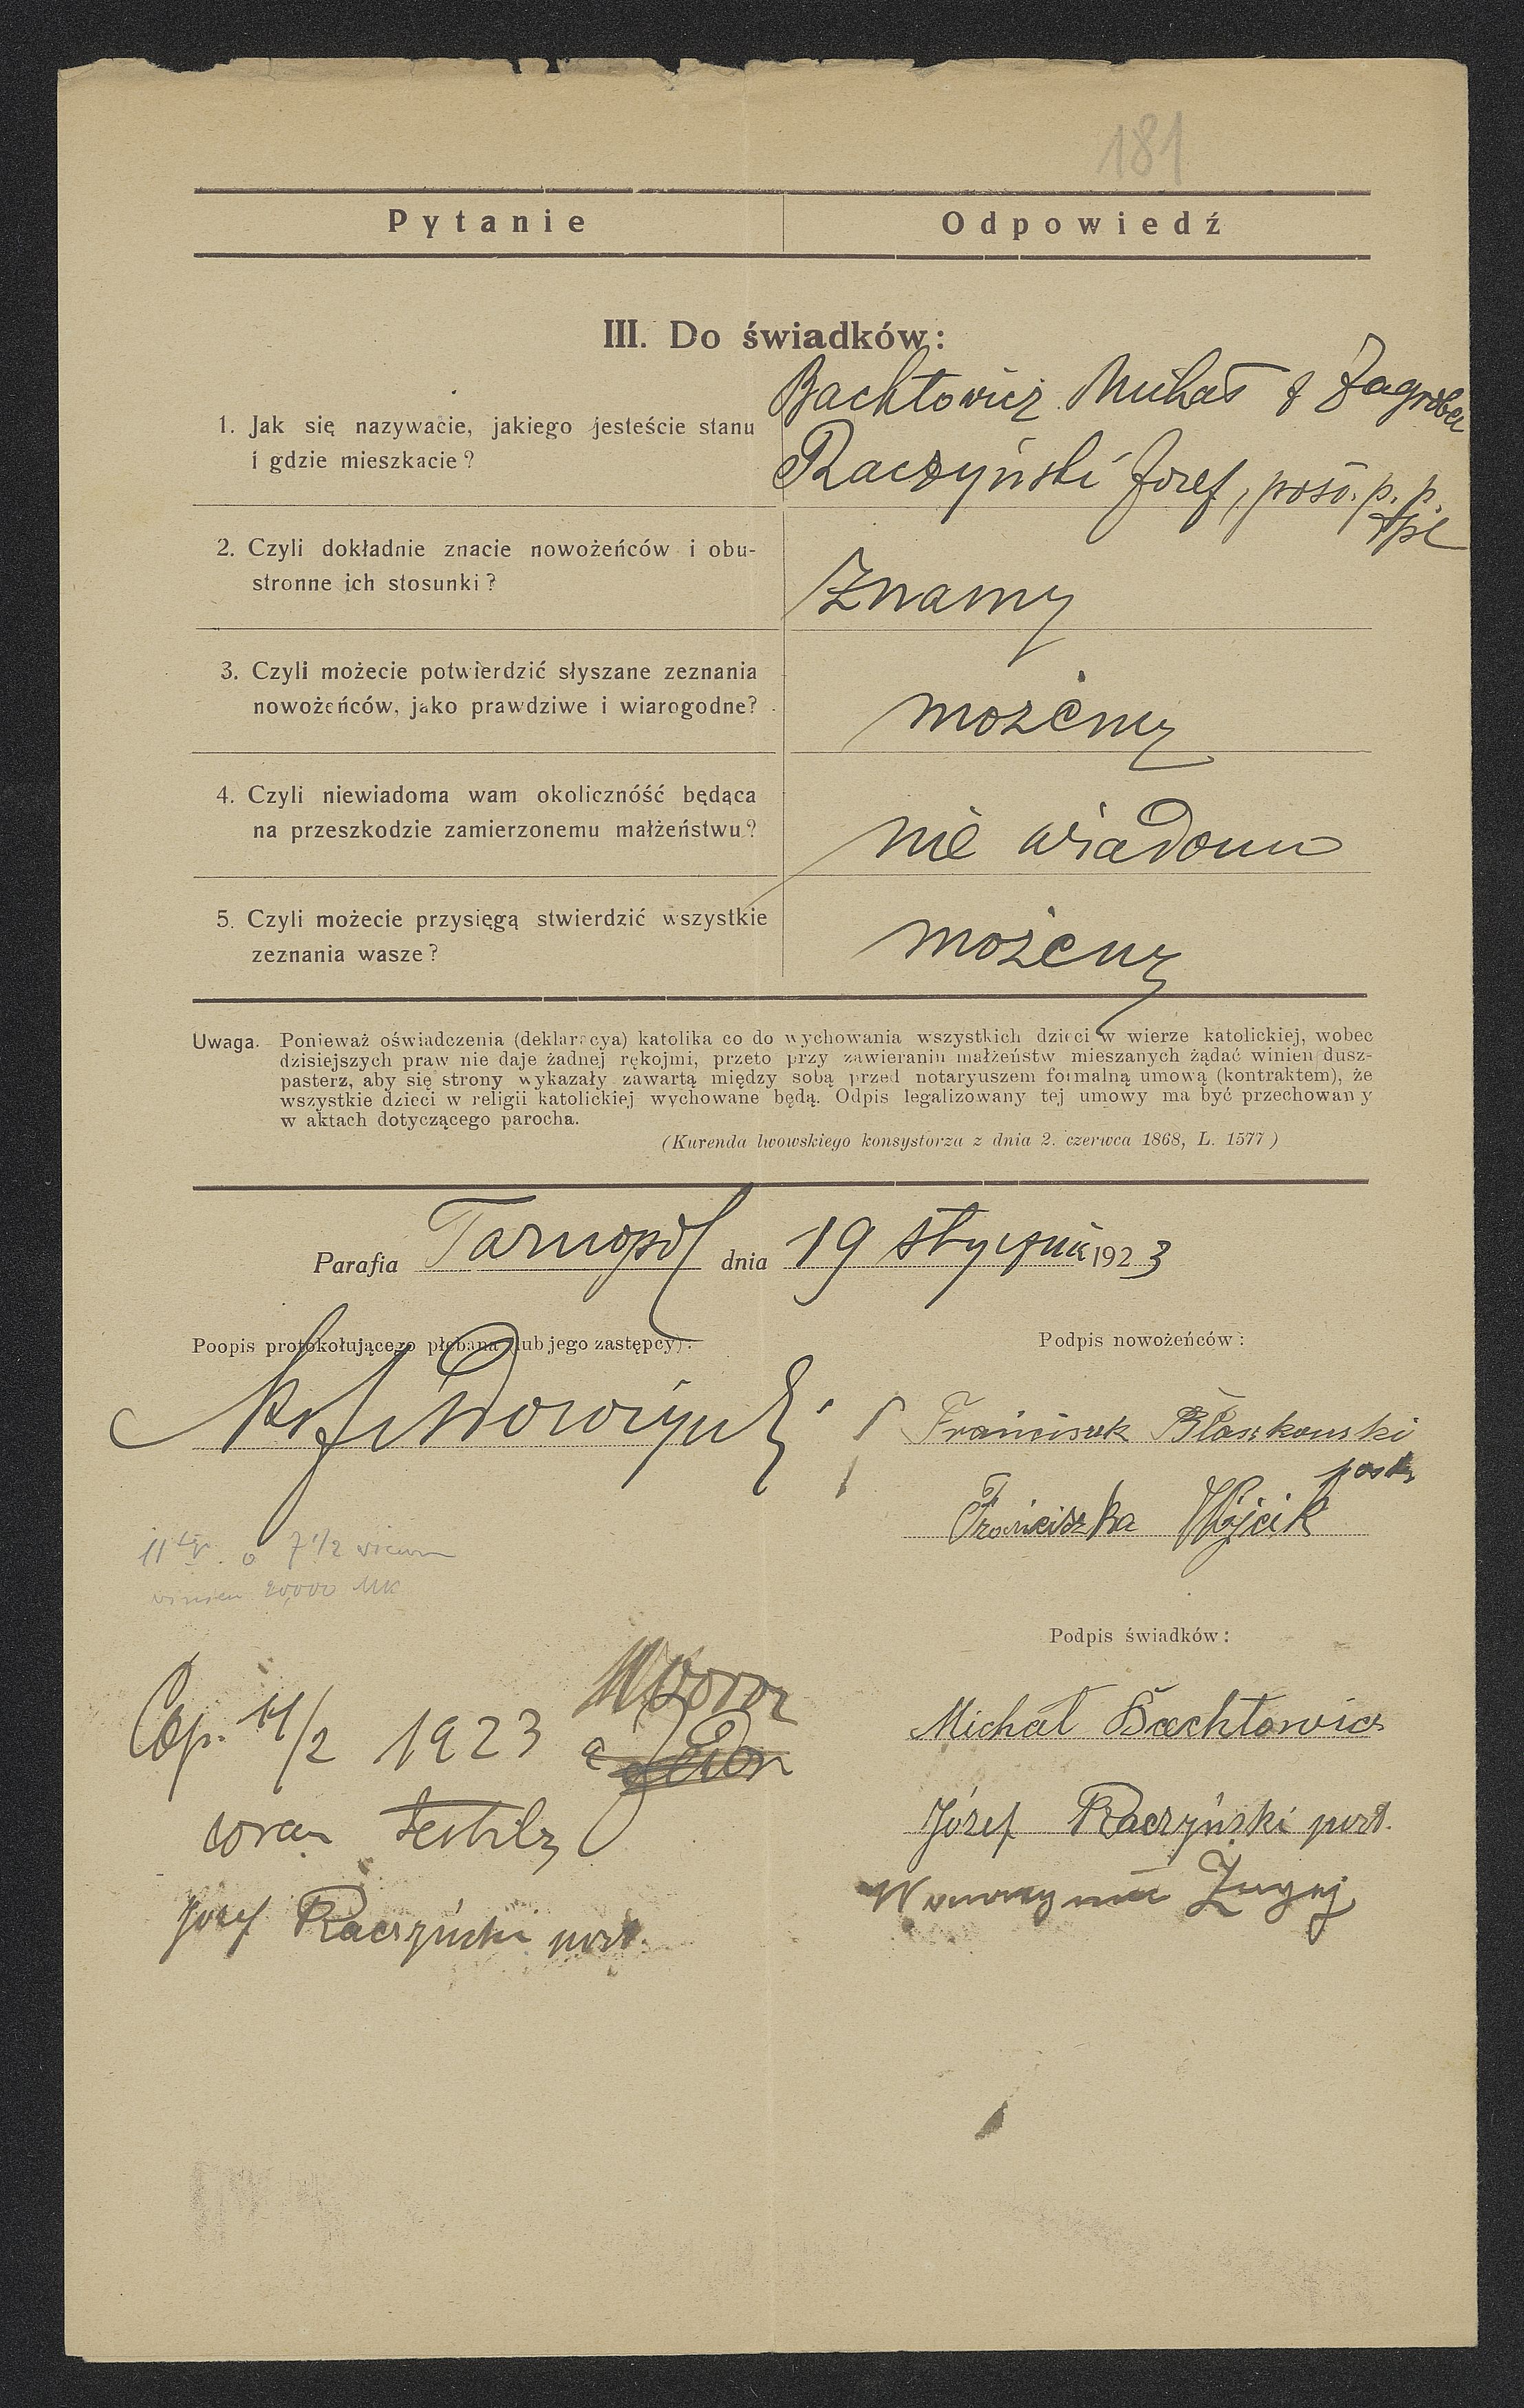 181
Pytanie Odpowiedź
III. Do świadków:
1. Jak się nazywacie, jakiego jesteście stanu
i gdzie mieszkacie?
Bachtowicz Michał z Zagrobeli
Raczyński Józef, post. p. p.
Tpl
2. Czyli dokładnie znacie nowożeńców i obu-
stronne ich stosunki?
Znamy
3. Czyli możecie potwierdzić słyszane zeznania
nowożeńców, jako prawdziwe i wiarogodne?
możemy
4. Czyli niewiadoma wam okoliczność będąca
na przeszkodzie zamierzonemu małżeństwu?
nie wiadomo
5. Czyli możecie przysięgą stwierdzić wszystkie
zeznania wasze?
możemy
Uwaga. Ponieważ oświadczenia (deklaracya) katolika co do wychowania wszystkich dzieci w wierze katolickiej, wobec
dzisiejszych praw nie daje żadnej rękojmi, przeto przy zawieraniu małżeństw mieszanych żądać winien dusz-
pasterz, aby się strony wykazały zawartą między sobą przed notaryuszem formalną umową (kontraktem), że
wszystkie dzieci w religii katolickiej wychowane będą. Odpis legalizowany tej umowy ma być przechowany
w aktach dotyczącego parocha.
(Kurenda lwowskiego konsystorza z dnia 2. czerwca 1868, L. 1577)
Parafia Tarnopol dnia 19 stycznia 1923
Poopis protokołującego plebana (lub jego zastępcy):
Podpis nowożeńców:
Franciszek Błaszkowski
post.
Franciszka Wójcik
11 o 7 1/2 wieczor
winien 20,000 MK
Podpis świadków:
Michał Bachtowicz
Cop. 11/2 1923
Józef Raczyński post.
coram
Józef Raczyński post.